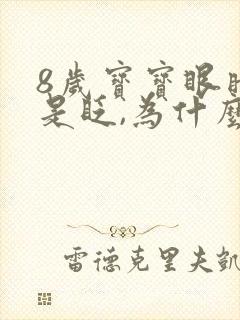 8歲寶寶眼
是眨,為什麼
雷德克里夫凱